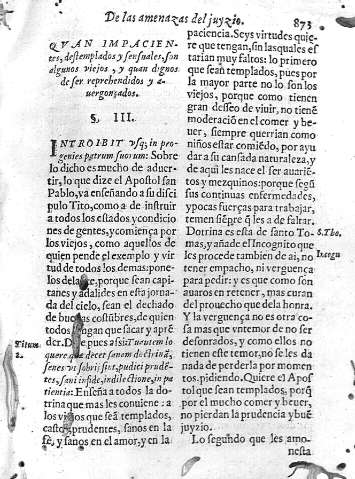 De las amenazas del juyzio.
873
QVAN IMPACIEN-
tes, destemplados y sensuales, son
algunos viejos, y quan dignos
de ser reprehendidos y a-
uergonçados.
§. III.
INTROIBIT vsq; in pro-
genies patrum suorum: Sobre
lo dicho es mucho de aduer-
tir, lo que dize el Apostol san
Pablo, ya enseñando a su disci
pulo Tito, como a de instruir
a todos los estados y condicio
nes de gentes, y comiença por
los viejos, como aquellos de
quien pende el exemplo y vir
tud de todos los demas: pone-
los delante, porque sean capi-
tanes y adalides en esta jorna-
da del cielo, sean el dechado
de buenas costũbres, de quien
todos tengan que sacar y apre
der. Dize pues assi Tu autem lo
Titum
2.
quere quæ decet sanam doctrinã,
senes vt sobrij sint, pudici prudẽ-
tes, sani in fide, in dilectione, in pa
tientia: Enseña a todos la do-
trina que mas les conuiene: a
los viejos que seã templados,
castos, prudentes, sanos en la
fe, y sanos en el amor, y en la
paciencia. Seys virtudes quie-
re que tengan, sin las quales es
tarian muy faltos: lo primero
que sean templados, pues por
la mayor parte no lo son los
viejos, porque como tienen
gran desseo de viuir, no tienẽ
moderaciõ en el comer y be-
uer, siempre querrian como
niños estar comiẽdo, por ayu
dar a su cansada naturaleza, y
de aqui les nace el ser auariẽ-
tos y mezquinos: porque segũ
sus continuas enfermedades,
y pocas fuerças para trabajar,
temen siẽpre q̃ les a de faltar.
Dotrina es esta de santo To-
S. Tho.
mas, y añade el Incognito que
Incogn.
les procede tambien de ai, no
tener empacho, ni verguença
para pedir: y es que como son
auaros en retener, mas curan
del prouecho que dela honra.
Y la verguença no es otra co-
sa mas que vn temor de no ser
desonrados, y como ellos no
tienen este temor, no se les da
nada de perderla por momen
tos, pidiendo. Quiere el Apos
tol que sean templados, porq̃
por el mucho comer y beuer,
no pierdan la prudencia y buẽ
juyzio.
Lo segundo que les amo-
nesta